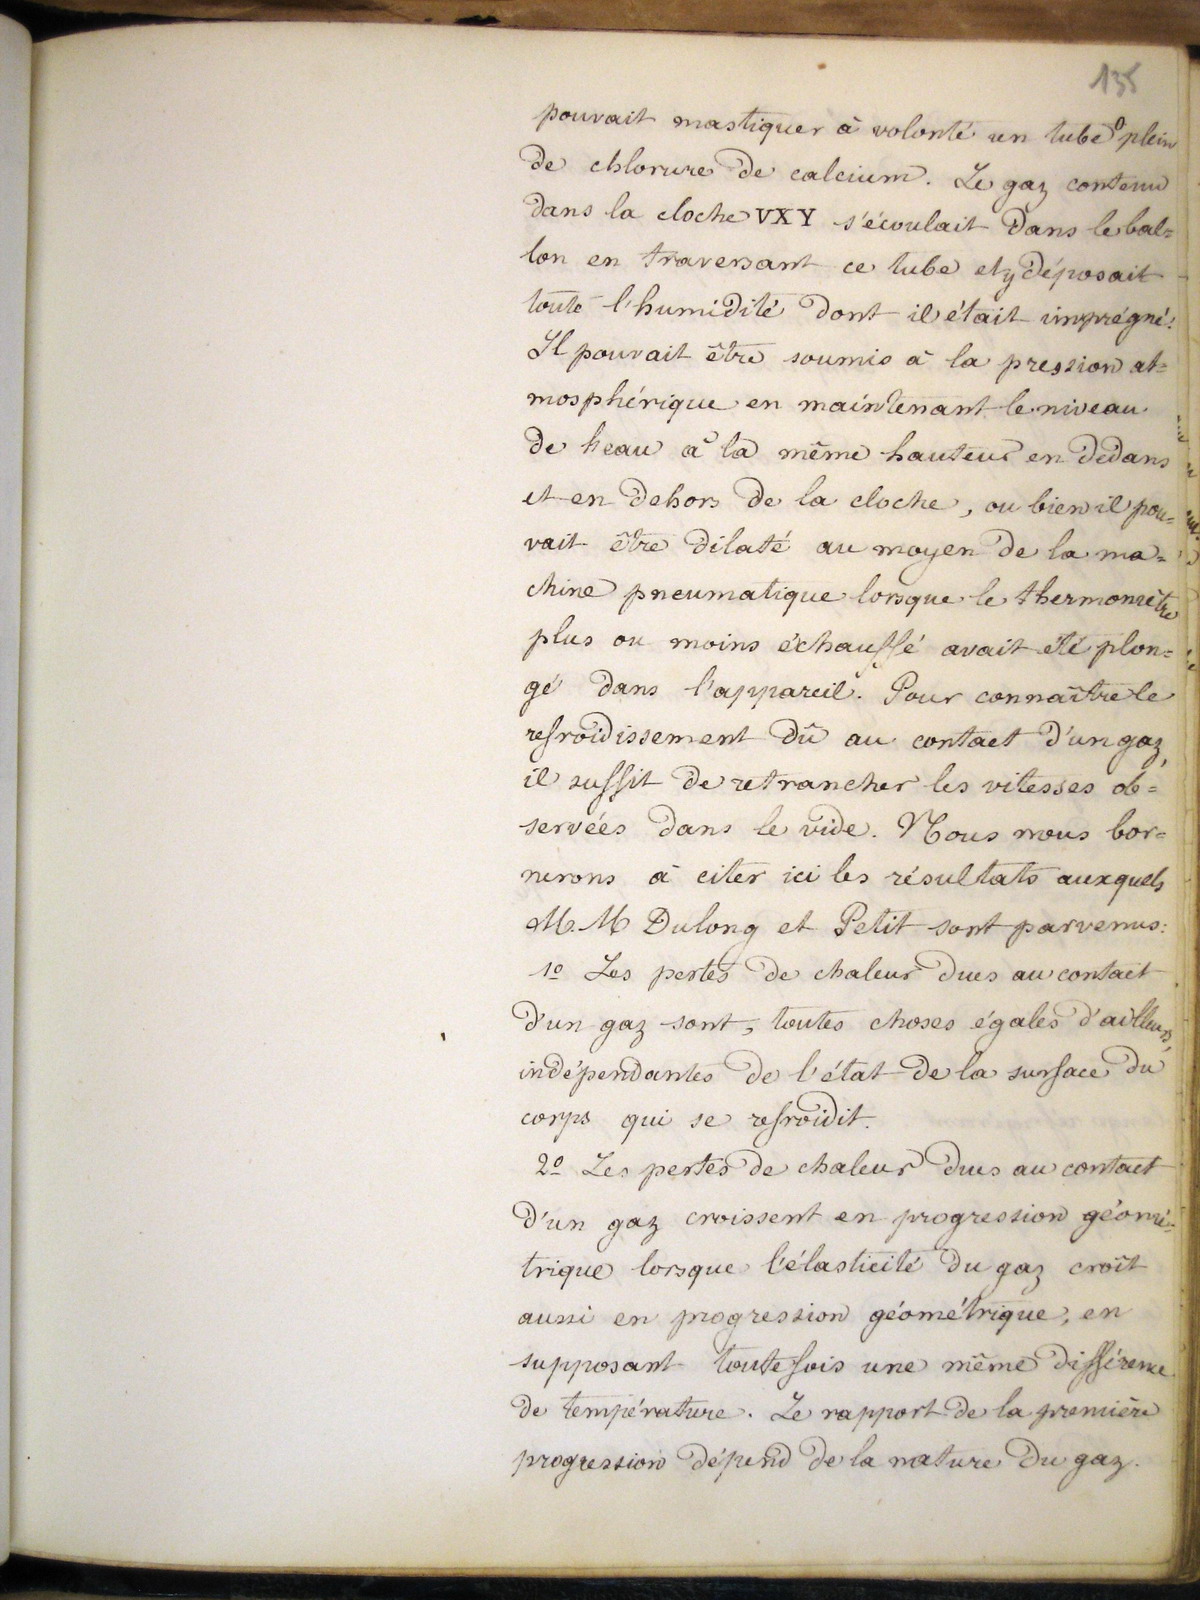 135
pouvait mastiquer à volonté un tube o plein
de chlorure de calcium. Le gaz contenu
dans la cloche VXY s'écoulait dans le bal=
lon en traversant ce tube et y déposait
toute l'humidité dont il était imprégné.
Il pouvait être soumis à la pression at=
mosphérique en maintenant le niveau
de l'eau à la même hauteur en dedans
et en dehors de la cloche, ou bien il pou=
vait être dilaté au moyen de la ma=
chine pneumatique lorsque le thermomètre
plus ou moins échauffé avait été plon=
gé dans l'appareil. Pour connaître le
refroidissement dû au contact d'un gaz,
il suffit de retrancher les vitesses ob=
servées dans le vide. Nous nous bor=
nerons à citer ici les résultats auxquels
M.M Dulong et Petit sont parvenus:
1º Les pertes de chaleur dues au contact
d'un gaz sont, toutes choses égales d'ailleurs,
indépendantes de l'état de la surface du
corps qui se refroidit.
2º Les pertes de chaleur dues au contact
d'un gaz croissent en progression géomé=
trique lorsque l'élasticité du gaz croît
aussi en progression géométrique, en
supposant toutefois une même différence
de température. Le rapport de la première
progression dépend de la nature du gaz.